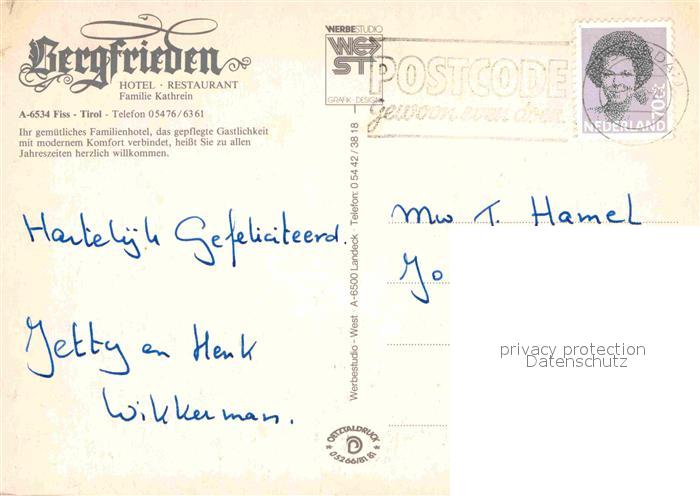 Bergfrieden
HOTEL · RESTAURANT
Familie Kathrein
A-6534 Fiss - Tirol - Telefon 05476/6361
Ihr gemütliches Familienhotel, das gepflegte Gastlichkeit
mit modernem Komfort verbindet, heißt Sie zu allen
Jahreszeiten herzlich willkommen.
Hartelijk Gefeliciteerd.
Jetty en Henk
Wikkerman.
WERBESTUDIO
WEST
GRAFIK-DESIGN
Werbestudio - West A-6500 Landeck Telefon: 0 54 42 / 38 18 -
ÖTZTALDRUCK
05266/8181
POSTCODE
gewoon even doen
70 c
NEDERLAND
Mw T. Hamel
Jo
privacy protection
Datenschutz